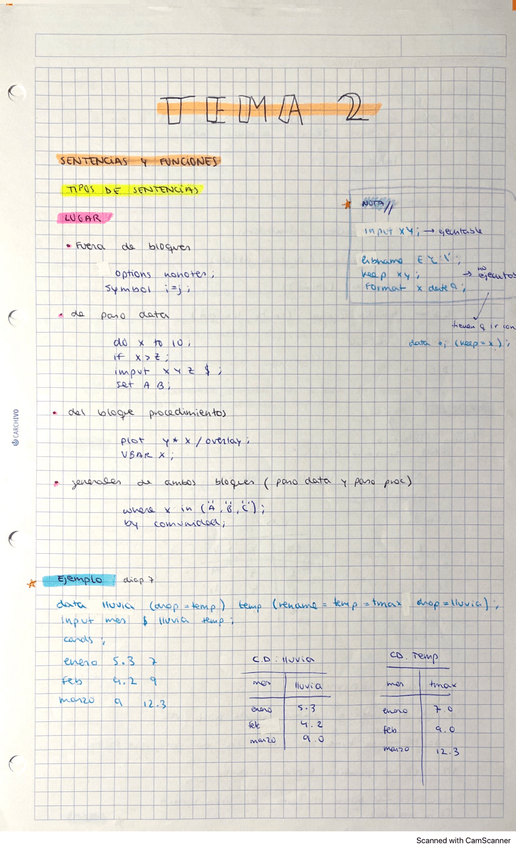 TEMA 2
SENTENCIAS Y FUNCIONES
TIPOS DE SENTENCIAS
LUGAR
• Fuera de bloques
options nonotes;
symbol i=j;
• de paso data
do x to 10;
if x>z;
input x y z $;
set A B;
• del bloque procedimientos
plot y * x / overlay;
VBAR x;
• generales de ambos bloques (paso data y paso proc)
where x in ("A", "B", "C");
by comunidad;
NOTA//
input x y; → ejecutable
libname
keep x y; → no ejecutable
format x date9;
tienen q ir con
data (keep=x);
Ejemplo diap 7
data lluvia (drop=temp) temp (rename=temp=tmax drop=lluvia);
input mes $ lluvia temp;
cards;
enero 5.3 7
feb 4.2 9
marzo 9 12.3
C.D: lluvia
mes lluvia
enero 5.3
feb 4.2
marzo 9.0
CD. Temp
mes tmax
enero 7.0
feb 9.0
marzo 12.3
CARCHIVO
Scanned with CamScanner